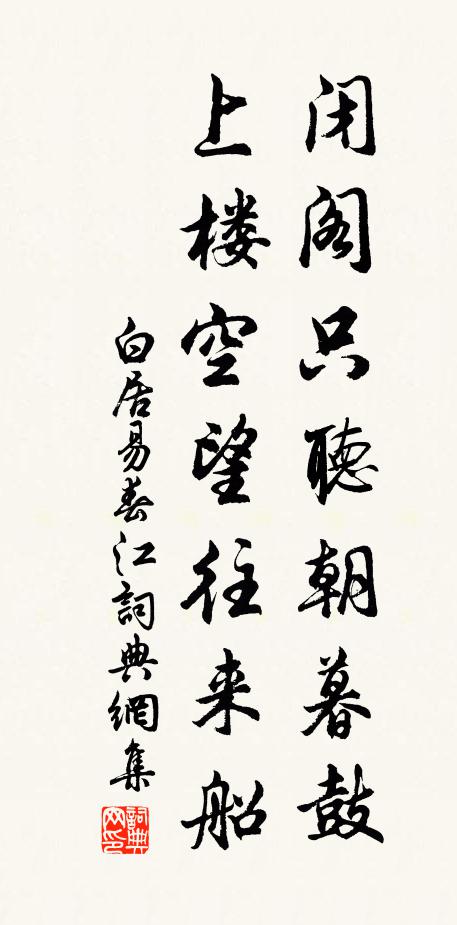 闭阁只聽朝暮鼓
上楼空望往来船
白居易春江詞典網集
詞典网印